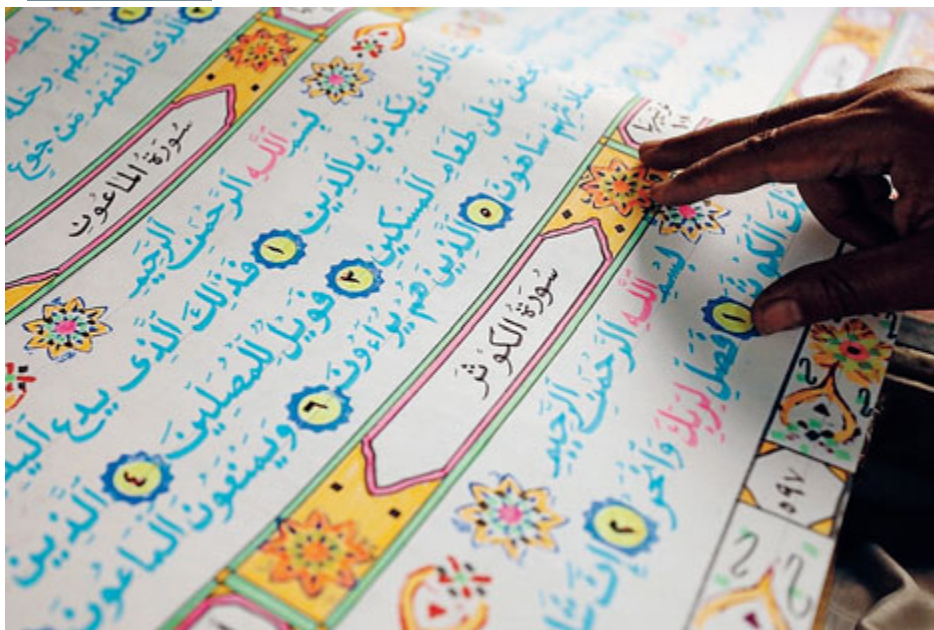 رحلة
الذى أطعمهم من جوع
سُورَةُ الْمَاعُون
بسم الله الرحمن الرحيم
الذى يكذب بالدين ١ فذلك الذى يدع
على طعام المسكين ٣ فويل للمصلين ٤ الذين
ساهون ٥ الذين هم يراءون ٦ ويمنعون الماعون
سُورَةُ الْكَوْثَر
بسم الله الرحمن الرحيم
الكوثر ١ فصل لربك وانحر ٢ إن
٥٩٧